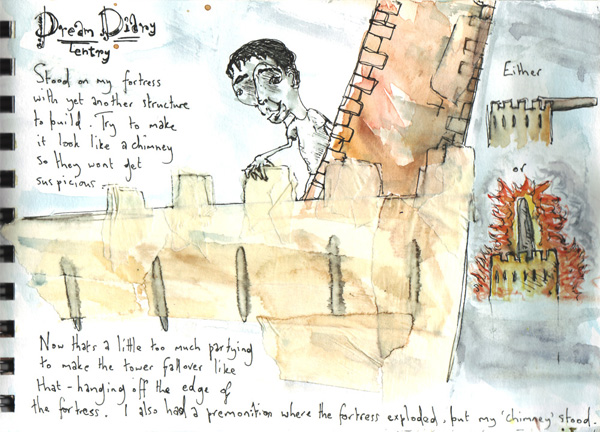 Dream Diary
Entry
Stood on my fortress
with yet another structure
to build. Try to make
it look like a chimney
so they wont get
suspicious.
Either
or
Now thats a little too much partying
to make the tower fallover like
that - hanging off the edge of
the fortress. I also had a premonition where the fortress exploded, but my 'chimney' stood.